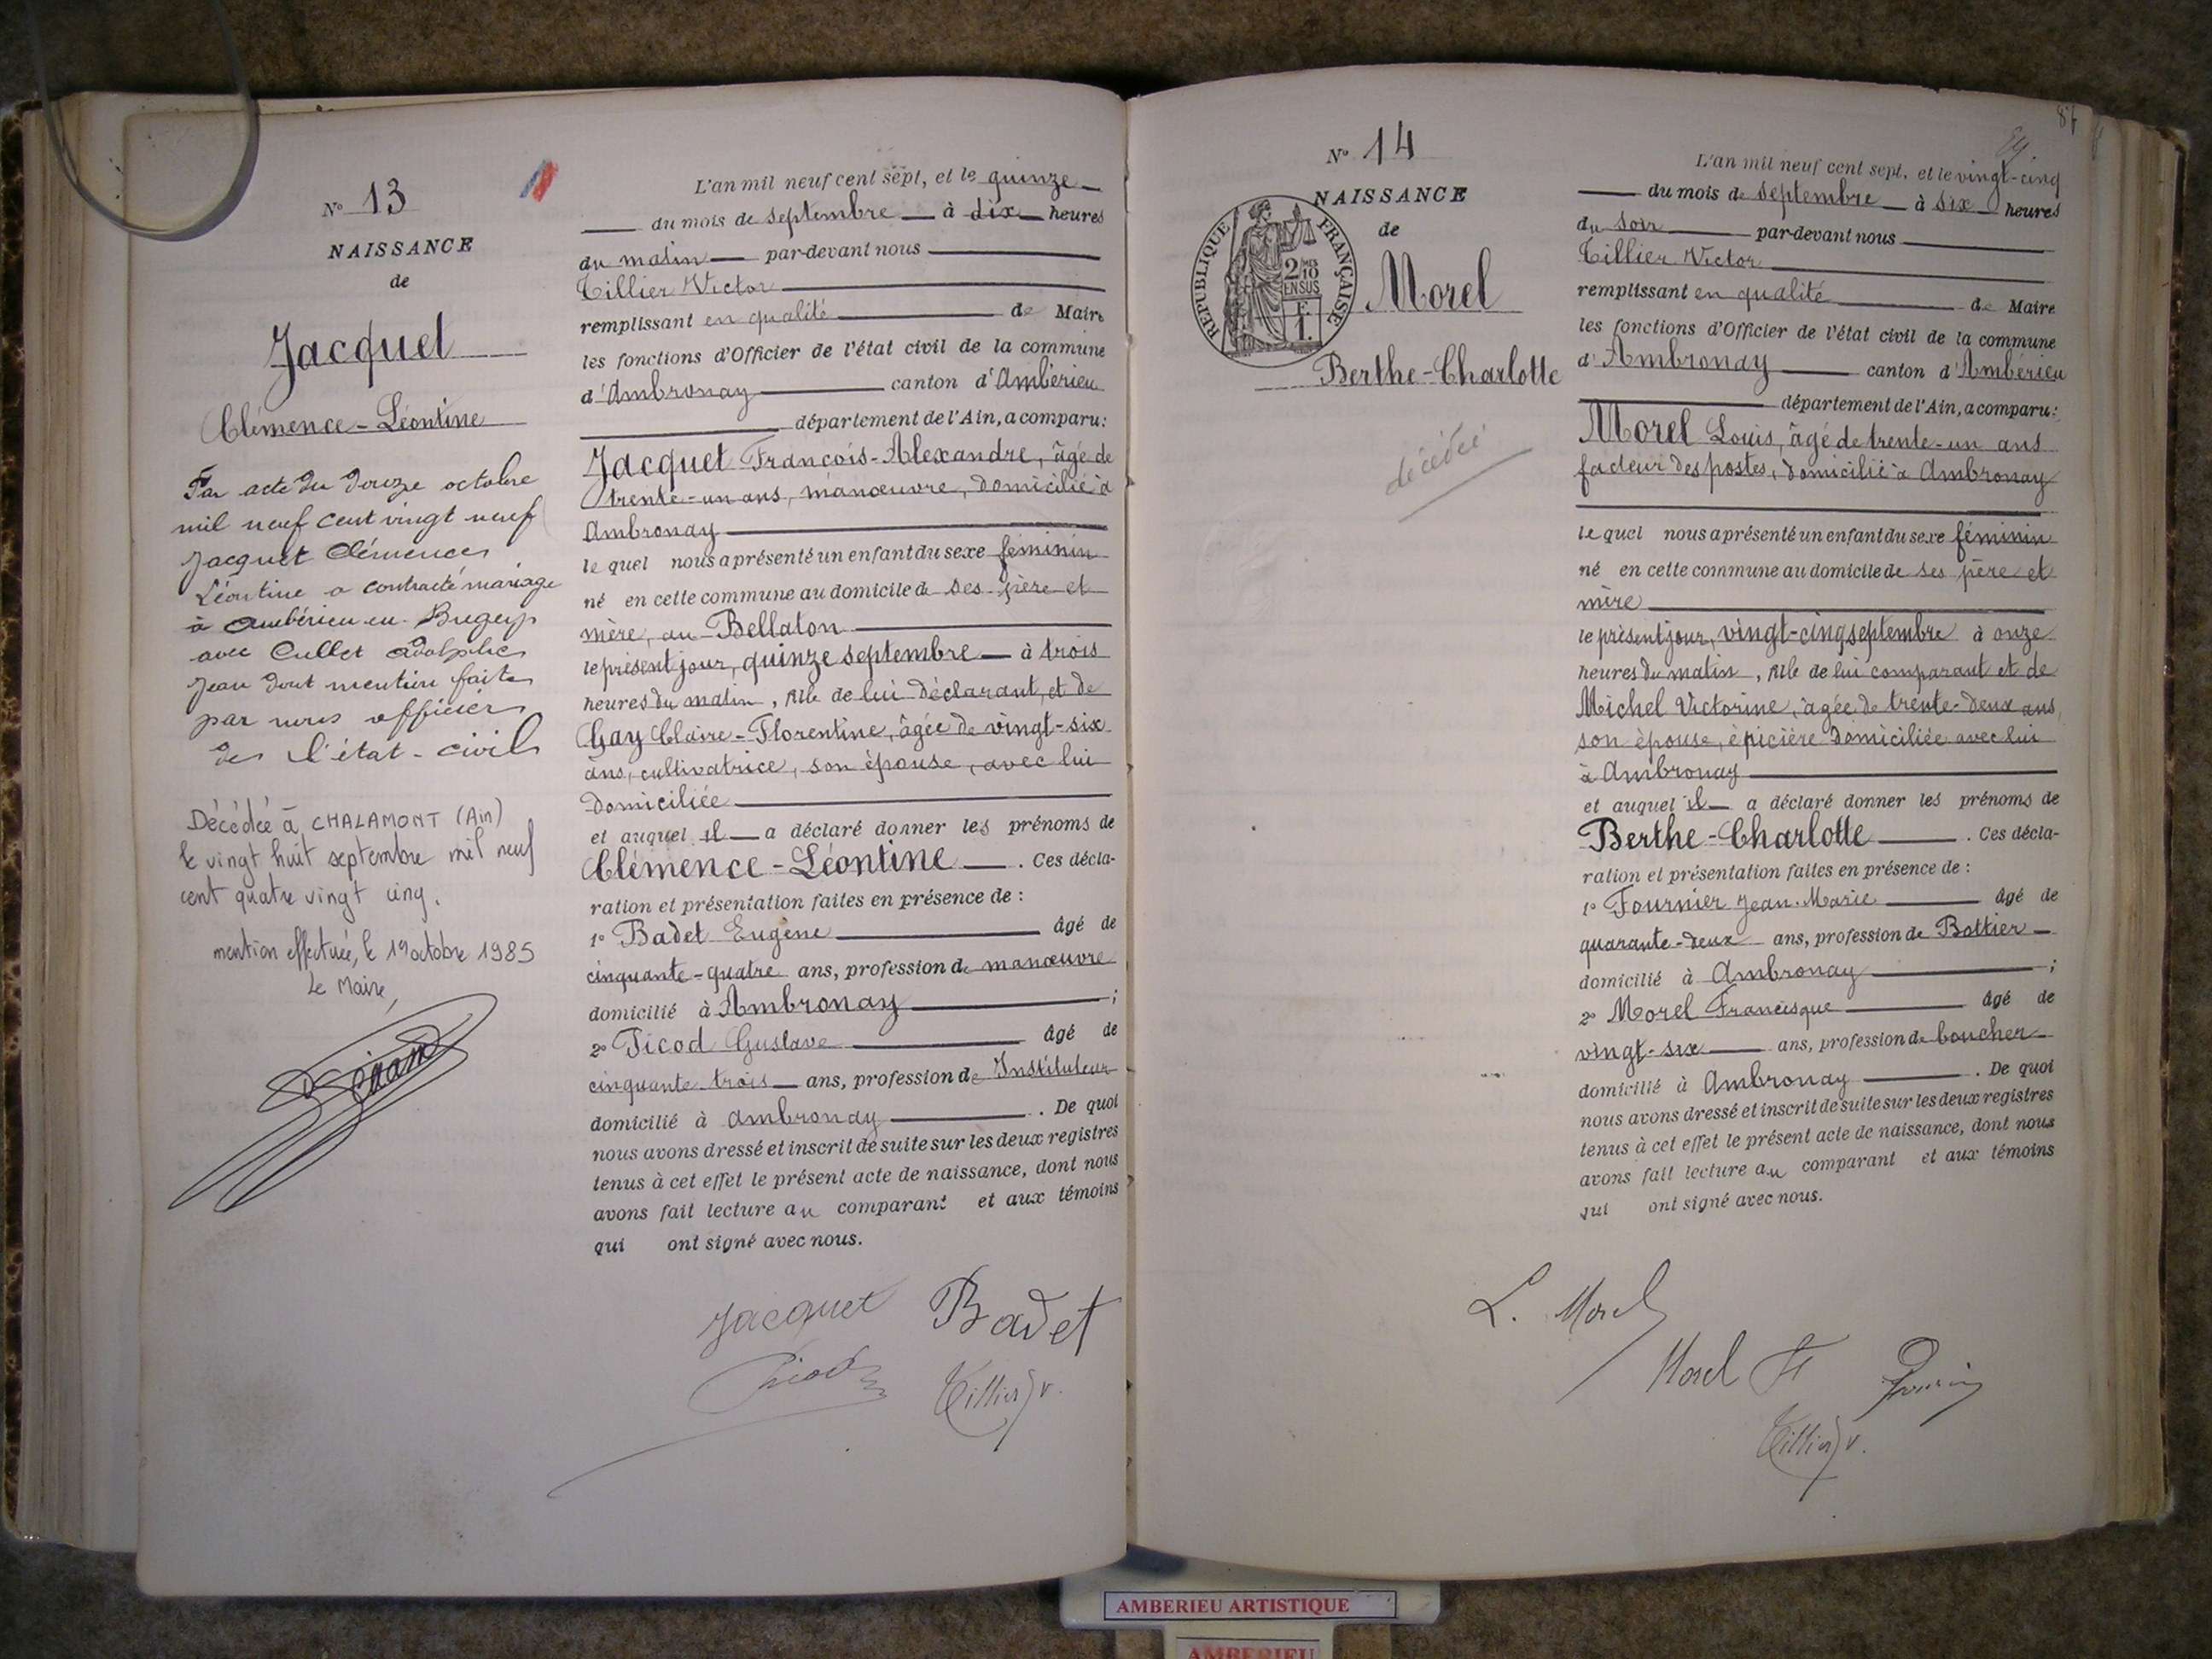 N° 13
NAISSANCE
de
Jacquet
Clémence-Léontine
Par acte du douze octobre
mil neuf cent vingt neuf
Jacquet Clémence
Léontine a contracté mariage
à Ambérieu-en-Bugey
avec Cullet Adolphe
Jean dont mention faite
par nous officier
de l'état-civil
Décédée à CHALAMONT (Ain)
le vingt huit septembre mil neuf
cent quatre vingt cinq.
mention effectuée, le 1er octobre 1985
Le Maire,
L'an mil neuf cent sept, et le quinze
du mois de septembre à dix heures
du matin par-devant nous
Tillier Victor
remplissant en qualité de Maire
les fonctions d'Officier de l'état civil de la commune
d'Ambronay canton d'Ambérieu
département de l'Ain, a comparu:
Jacquet François-Alexandre, âgé de
trente-un ans, manœuvre, domicilié à
Ambronay
lequel nous a présenté un enfant du sexe féminin
né en cette commune au domicile de ses père et
mère, au Bellaton
le présent jour, quinze septembre à trois
heures du matin, fille de lui déclarant, et de
Gay Claire-Florentine, âgée de vingt-six
ans, cultivatrice, son épouse, avec lui
domiciliée
et auquel il a déclaré donner les prénoms de
Clémence-Léontine . Ces décla-
ration et présentation faites en présence de :
1° Badet Eugène âgé de
cinquante-quatre ans, profession de manœuvre
domicilié à Ambronay ;
2° Picod Gustave âgé de
cinquante trois ans, profession de Instituteur
domicilié à Ambronay . De quoi
nous avons dressé et inscrit de suite sur les deux registres
tenus à cet effet le présent acte de naissance, dont nous
avons fait lecture au comparant et aux témoins
qui ont signé avec nous.
Jacquet Badet
Picod Tillier V.
84
N° 14
NAISSANCE
de
REPUBLIQUE FRANÇAISE
2/10
EN SUS
F.
1.
Morel
Berthe-Charlotte
décédée
L'an mil neuf cent sept, et le vingt-cinq
du mois de septembre à six heures
du soir par-devant nous
Tillier Victor
remplissant en qualité de Maire
les fonctions d'Officier de l'état civil de la commune
d'Ambronay canton d'Ambérieu
département de l'Ain, a comparu:
Morel Louis, âgé de trente-un ans
facteur des postes, domicilié à Ambronay
lequel nous a présenté un enfant du sexe féminin
né en cette commune au domicile de ses père et
mère
le présent jour, vingt-cinq septembre à onze
heures du matin, fille de lui comparant et de
Michel Victorine, âgée de trente-deux ans,
son épouse, épicière domiciliée avec lui
à Ambronay
et auquel il a déclaré donner les prénoms de
Berthe-Charlotte . Ces décla-
ration et présentation faites en présence de :
1° Fournier Jean-Marie âgé de
quarante-deux ans, profession de Bottier
domicilié à Ambronay ;
2° Morel Francisque âgé de
vingt-six ans, profession de boucher
domicilié à Ambronay . De quoi
nous avons dressé et inscrit de suite sur les deux registres
tenus à cet effet le présent acte de naissance, dont nous
avons fait lecture au comparant et aux témoins
qui ont signé avec nous.
L. Morel
Morel F
Tillier V.
AMBERIEU ARTISTIQUE
AMBERIEU